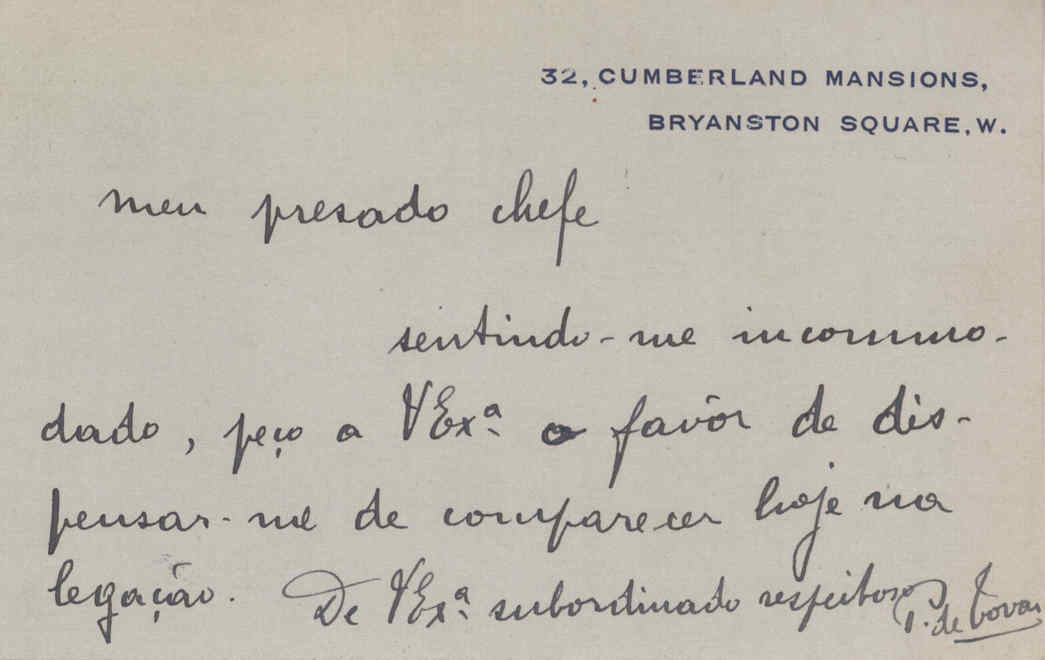 32, CUMBERLAND MANSIONS,
BRYANSTON SQUARE, W.
Meu presado chefe
sentindo-me incommo-
dado, peço a VExª o favôr de dis-
pensar-me de comparecer hoje na
legação. De VExª subordinado respeitoso
P. de Tovar